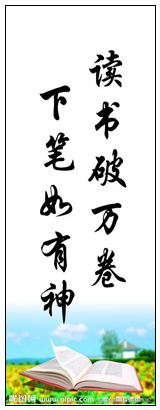 读书破万卷
下笔如有神
昵图网 www.nipic.com